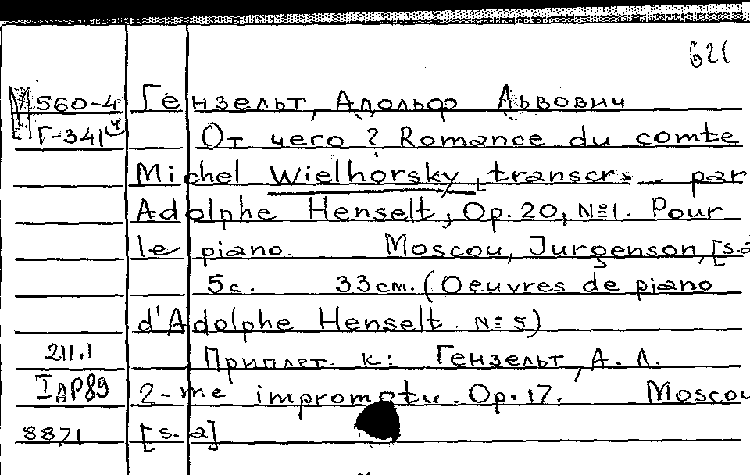 621
М560-4 Гензельт, Адольф Львович
Г-341 От чего? Romance du comte
Michel Wielhorsky, transcr. par
Adolphe Henselt, Op. 20, №1. Pour
le piano. Moscou, Jurgenson, [s.a
5с. 33см. (Oeuvres de piano
d'Adolphe Henselt №5)
211.1 Приплет. к: Гензельт, А. Л.
IАР89 2-me impromptu. Op. 17. Moscou
8871 [s.a]